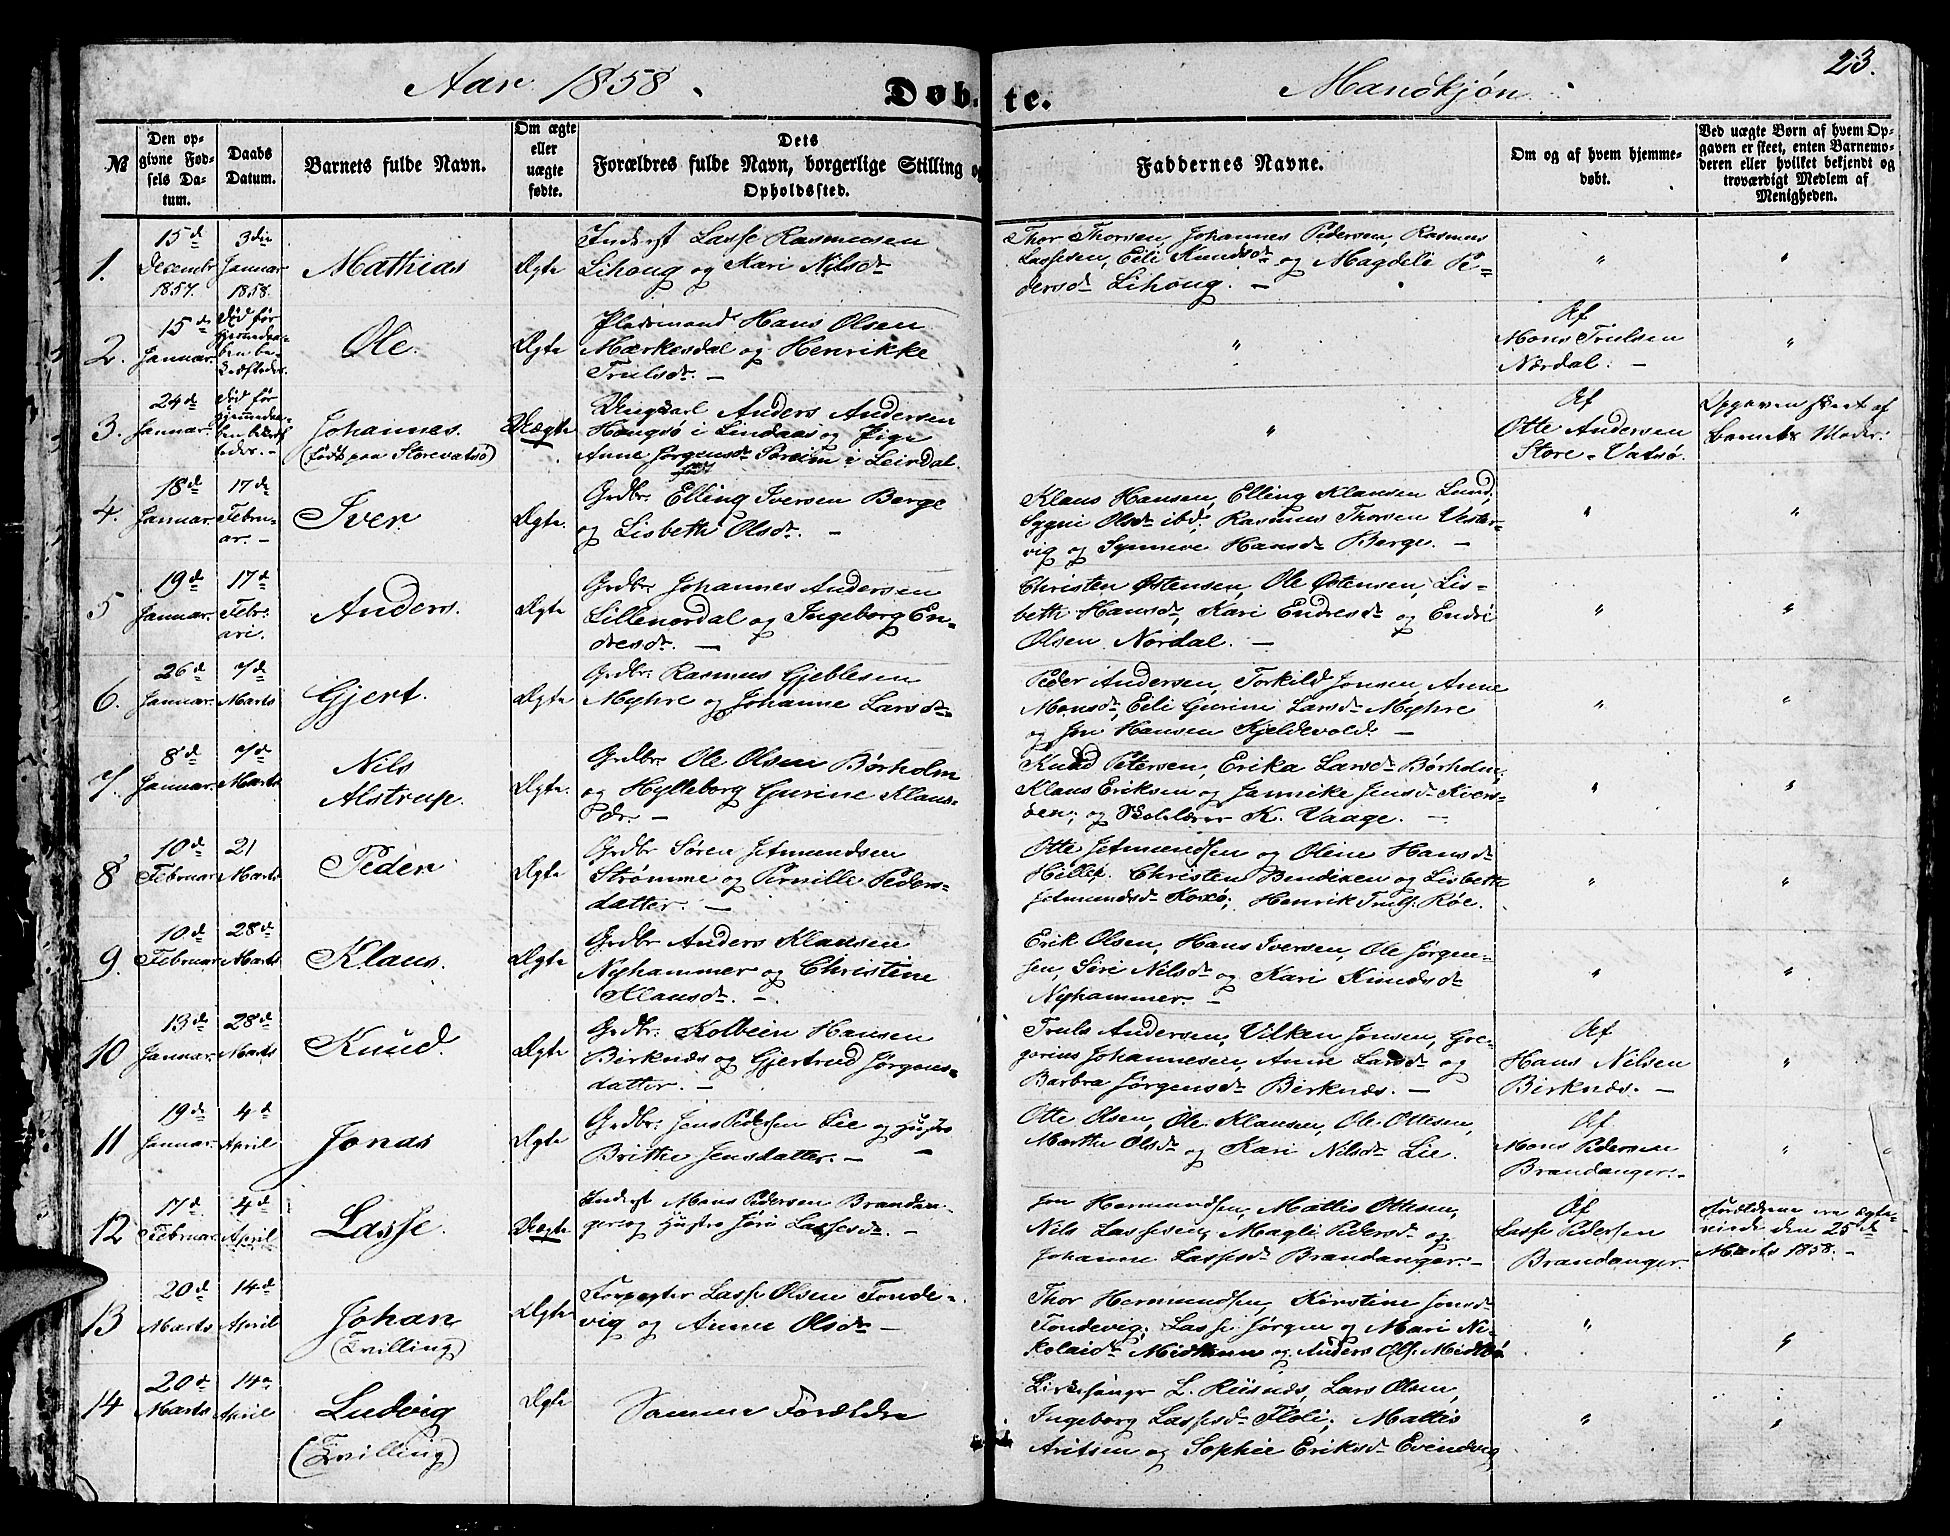 Aar 1858.
Døbte.
Mandkjøn
23.
№
Den op-
givne Fød-
sels Da-
tum.
Daabs
Datum.
Barnets fulde Navn.
Om ægte
eller
uægte
fødte.
Dets
Forældres fulde Navn, borgerlige Stilling og
Opholdssted.
Faddernes Navne.
Om og af hvem hjemme-
døbt.
Ved uægte Børn af hvem Op-
gaven er skeet, enten Barnemo-
deren eller hvilket bekjendt og
troværdigt Medlem af
Menigheden.
1.
15de
Decembr
1857.
3die
Januar
1858.
Mathias
Ægte
Inderst Lasse Rasmussen
Lihoug og Kari Nilsdr
Thor Thorsen, Johannes Pedersen, Rasmus
Lassesen, Eli Knudsdr og Magdeli Pe-
dersdr Lihoug. —
"
"
2.
15de
Januar.
Død før
Hjemmedaa-
ben be-
kræftedes.
Ole.
Ægte
Pladsmand Hans Olsen
Mærkesdal og Henrikke
Trulsdr. —
"
Af
Mons Trulsen
Nærdal. —
"
3.
24de
Januar.
Død før
hjemmedaa-
ben bekræf-
tedes. —
Johannes.
(født paa Storevatsø)
Uægte
Ungkarl Anders Andersen
Hougsø i Lindaas og Pige
Anne Jørgensdr Søreim i Leirdal.
"
Af
Otte Andersen
Store-Vatsø.
Opgaven skeet af
Barnets Moder.
4.
18de
Januar.
17de
Febru-
ar. —
Iver
Ægte.
Grdbr. Elling Iversen Berge
og Lisbeth Olsdr. —
Klaus Hansen, Elling Klausen Lund,
Sygni Olsdr ibd, Rasmus Thorsen Vester-
vig og Synneve Hansdr Berge. —
"
"
5
19de
Januar.
17de
Febr:
ari.
Anders.
Ægte
Grdbr. Johannes Andersen
Lillenordal og Ingeborg En-
dresdr. —
Christen Østensen, Ole Østensen, Lis-
beth Hansdr, Kari Endresdr og Endre
Olsen Nordal. —
"
"
6.
26de
Januar.
7de
Marts
Gjert.
Ægte
Grdbr: Rasmus Gjeblesen
Myhre og Johanne Larsdr.
Peder Andersen, Torkild Jonsen, Anne
Monsdr, Eli Gurine Larsdr Myhre
og Jon Hansen Kjeldevold. —
"
"
7.
8de
Januar.
7de
Marts
Nils
Alstrup.
Ægte.
Grdbr Ole Olsen Børholm
og Hylleborg Gurine Klaus-
dr. —
Knud Petersen, Erika Larsdr Børholm;
Klaus Eriksen og Jannike Jensdr Kvers-
den; og Skolelærer K. Vaage. —
"
"
8
10de
Februar
21
Marts
Peder
Ægte
Grdbr Søren Jetmundsen
Strømme og Pernille Peders-
datter. —
Otte Jetmundsen og Oline Hansdr
Hille; Christen Bendixen og Lisbeth
Jetmundsdr Koxø; Henrik Truls. Røe.
"
"
9.
10de
Februar
28de
Marts
Klaus.
Ægte
Grdbr Anders Klausen
Nyhammer og Christine
Klausdr. —
Erik Olsen, Hans Iversen, Ole Jørgen-
sen, Siri Nilsdr og Kari Knudsdr
Nyhammer. —
"
"
10
13de
Januar.
28de
Marts
Knud.
Ægte
Grdbr: Kolbein Hansen
Birknæs og Gjertrud Jørgens-
datter. —
Truls Andersen, Vilken Jonsen, Gre-
gorius Johannesen, Anne Larsdr og
Barbra Jørgensdr Birknæs. —
Af
Hans Nilsen
Birknæs. —
"
11
19de
Januar.
4de
April
Jonas
Ægte
Grdbr: Jens Pedersen Lie og Hustro
Brithe Jensdatter. —
Otte Olsen, Ole Klausen, Ole Ottesen,
Marthe Olsdr og Kari Nilsdr Lie.
Af
Mons Pedersen
Brandanger. —
"
12
17de
Februar
4de
April
Lasse.
Uægte
Inderst Mons Pedersen Brandan-
ger og Hustro Jøri Lassesdr. —
Jon Hermundsen, Mattis Ottesen,
Nils Lassesen, Magli Pedersdr og
Johanne Lassesdr Brandanger. —
Af
Lasse Pedersen
Brandanger.
Forældrene ere ægte-
viede den 25de
Marts 1858. —
13
20de
Marts
14de
April
Johan
(Tvilling)
Ægte
Forpagter Lasse Olsen Fonde-
vig og Anne Olsdr —
Thor Hermundsen, Kirstine Jonsdr
Fondevig; Lasse Jørgen og Mari Ni-
kolaidr Midttun og Anders Ols. Midtbø
"
"
14
20de
Marts
14de
April
Ludvig
(Tvilling)
Ægte
Samme Forældre
Kirkesanger L. Riisnæs, Lars Olsen,
Ingeborg Lassesdr Floli; Mattis
Aritsen og Sophie Eriksdr Evindvig
"
"